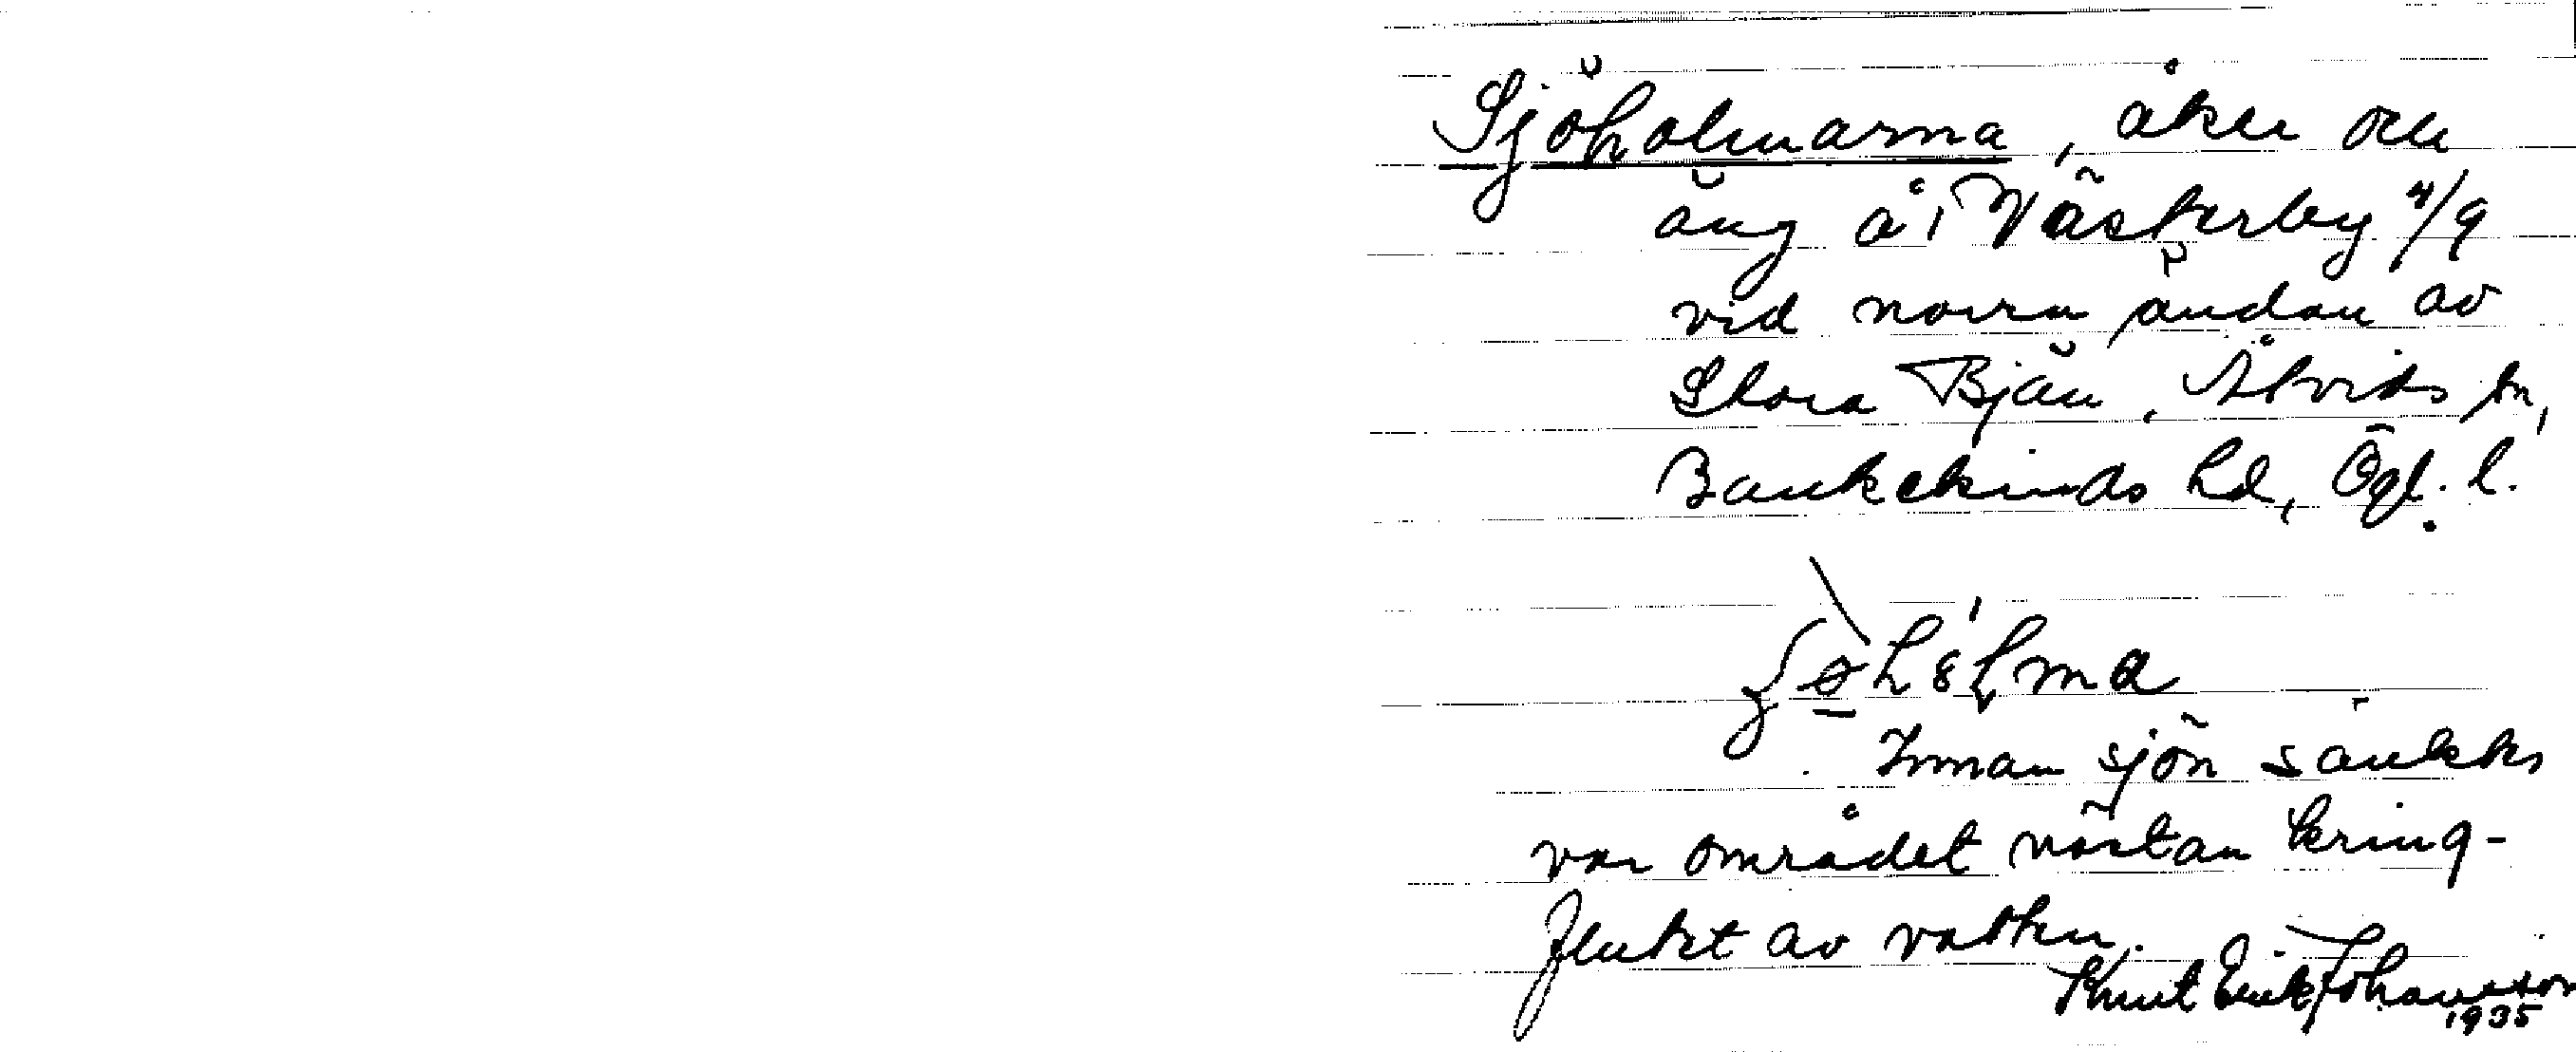 Sjöholmarna, åker och
äng å Västerby 4/9
vid norra ändan av
Stora Bjän, Åtvids sn,
Bankekinds hd, Ögl. l.
Innan sjön sänktes
var området nästan kring-
flutet av vatten.
Knut Erik Johansson
1935